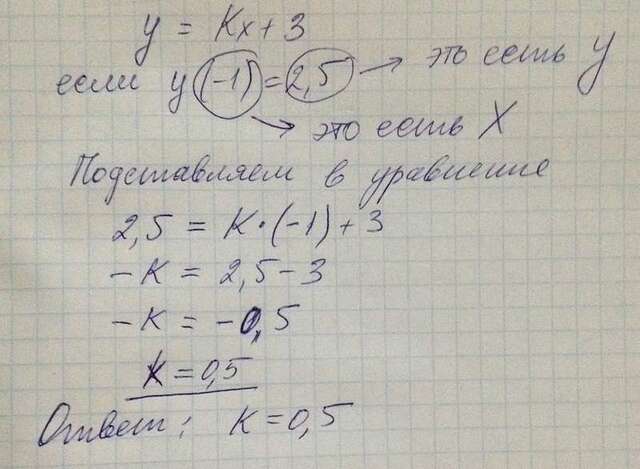 y = Kx + 3
если y (-1) = 2,5 → это есть y
→ это есть X
Подставляем в уравнение
2,5 = K·(-1) + 3
-K = 2,5 - 3
-K = -0,5
K = 0,5
Ответ: K = 0,5